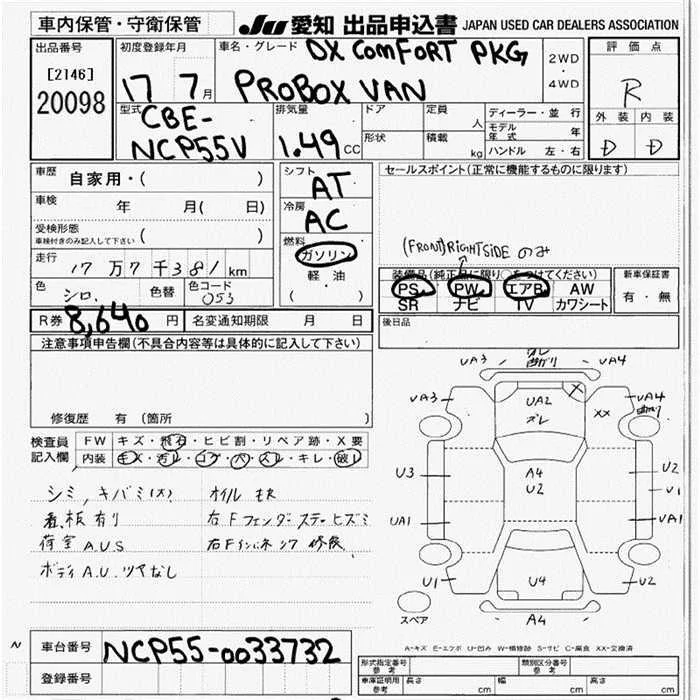 車内保管・守衛保管 JU 愛知 出品申込書 JAPAN USED CAR DEALERS ASSOCIATION
出品番号 初度登録年月 車名・グレード DX COMFORT PKG 2WD・4WD 評価点
[2146] 20098 17 7月 PROBOX VAN R
型式 CBE-NCP55V 排気量 1.49 CC ドア 定員 人 ディーラー・並行 外装 内装
形状 積載 kg モデル年式 年 D D
ハンドル 左・右
車歴 自家用・( ) シフト AT セールスポイント(正常に機能するものに限ります)
車検 年 月( 日) 冷房 AC
受検形態 車検付きのみ記入して下さい ( ) 燃料 ガソリン (FRONT)RIGHTSIDE のみ
走行 17万7千381km 軽油 装備品(純正品に限り○をつけてください) 新車保証書
色 シロ. 色替 色コード 053 ( ) PS PW エアB AW 有・無
SR ナビ TV カワシート
R券 8,640円 名変通知期限 月 日 後日品
注意事項申告欄(不具合内容等は具体的に記入して下さい)
修復歴 有(箇所 )
UA3 UA4
UA3 UA2 ズレ XX UA4
検査員記入欄 FW キズ・飛石・ヒビ割・リペア跡・X要
内装 キズ・汚レ・コゲ・穴・スレ・キレ・破レ
U3 A4 U2 U2
U1
UA1 UA1
シミ,キバミ(大) オイル
看板有り 右Fフェンダーステーヒズミ
荷室A.U.S 右Fインパネ 修復
ボディA.U.ツヤなし
U1 U4 U2
スペア A4
A-キズ E-エクボ U-凹み W-補修跡 S-サビ C-腐食 XX-交換済
N 車台番号 NCP55-0033732 形式指定番号 参考 類別区分番号 参考
登録番号 車庫証明用 参考 長さ cm 幅 cm 高さ cm